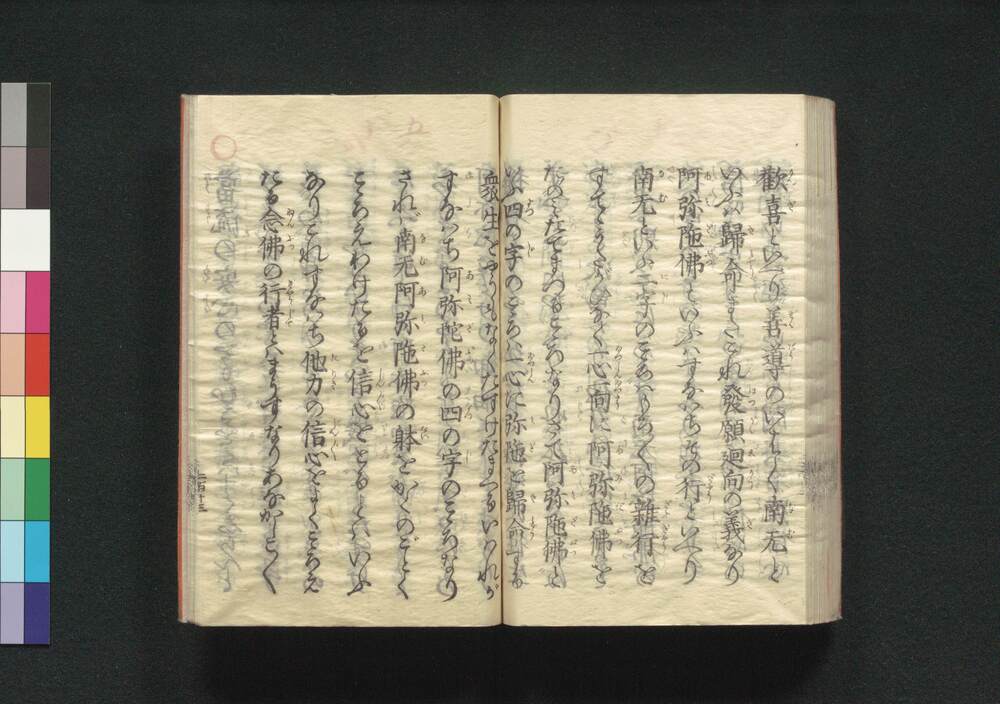 歡喜といへり善導のいはく南无と
いふは歸命またこれ發願廻向の義なり
阿弥陁佛といふはすなはちその行といへり
南无といふ二字のこゝろはもろ〳〵の雜行を
すてゝうたかひなく一心一向に阿弥陁佛を
たのみたてまつるこゝろなりさて阿弥陁佛と
いふ四の字のこゝろは一心に弥陁を歸命する
衆生をやうもなくたすけたまへるいはれが
すなはち阿弥陀佛の四の字のこゝろなり
されば南无阿弥陁佛の躰をかくのごとく
こゝろえわけたるを信心をとるとはいふ
なりこれすなはち他力の信心をよくこゝろえ
たる念佛の行者とはまうすなりあなかしこ〳〵